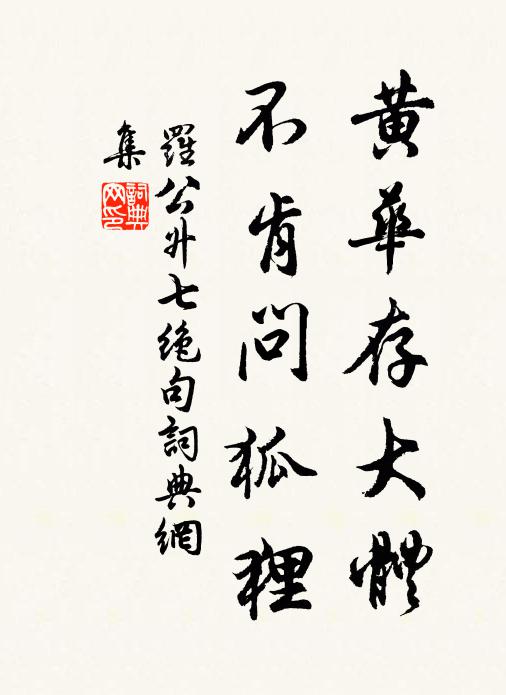 黃華存大體
不肯問狐狸
羅公升七绝句詞典網
集
詞典
网印